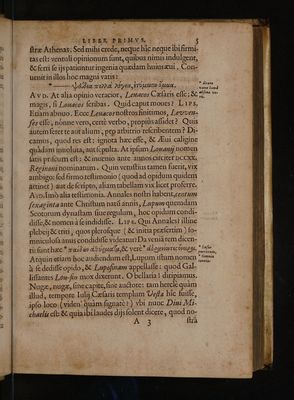 LIBER PRIMVS. 5
stræ Athenas. Sed mihi crede, neque hîc neque ibi firmi-
tas est: ventoli opinionum sunt, quibus nimis indulgent,
& ferri se ijs patiuntur ingenia quædam huius æui. Con-
uenit in illos hoc magni vatis:
AVD. At alia opinio veracior, Louaios Cæsaris esse; &
magis, si Louacos scribas. Quid caput moues? LIPS.
Etiam abnuo. Ecce Louacos nostros finitimos, Lovven-
sers esse, nónne vero, certè verbo, propiùs assidet? Quis
autem seret te aut alium, pro arbitrio rescribentem? Di-
camus, quod res est: ignota hæc esse, & Æui caligine
quâdam inuoluta, aut sepulta. At ipsum Louanij nomen
satis priscum est: & inuenio ante annos circiter DCCXX,
Reginoni nominatum. Quin vetustius tamen fuerit, vix
ambigo: sed firmo testimonio (quod ad opidum quidem
attinet) aut de scripto, aliam tabellam vix licet proferre.
AVD. Imò alia testimonia. Annales nostri habent, centum
sexaginta ante Christum natum annis, Lupum quemdam
Scotorum dynastam siue regulum, hoc opidum condi-
disse, & nomen à se indidisse. LIPS. Qui Annales? illine
plebeij & triti, quos plerosque (& initia præsertim) so-
mniculosa anus condidisse videatur? Da veniâ rem dicen-
ti: sunt hæc
Atquin etiam hoc audiendum est, Lupum istum nomen
à se dedisse opido, & Lupofanum appellasse: quod Gal-
lissantes Lou-fan mox dixerunt. O bellaria! diripiamus.
Nugæ, nugæ, sine capite, sine auctore: tam herclè quàm
illud, tempore Iulij Cæsaris templum Vestæ hîc fuisse,
ipso loco (viden' quàm signatè?) vbi nunc Diui Mi-
chaëlis est: & quia ibi laudes dijs solent dicere, quod no-
A 3 stra